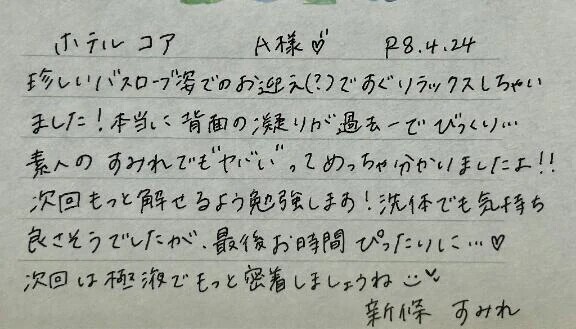 ホテル コア A様♡ R8.4.24
珍しいバスローブ姿でのお迎え(?)ですぐリラックスしちゃい
ました！本当に背面の凝りが過去一でびっくり…
素人のすみれでも"ヤバい"ってめっちゃ分かりましたよ!!
次回もっと解せるよう勉強しまあ！洗体でも気持ち
良さそうでしたが、最後お時間ぴったりに…♡
次回は極液でもっと密着しましょうね
新條 すみれ